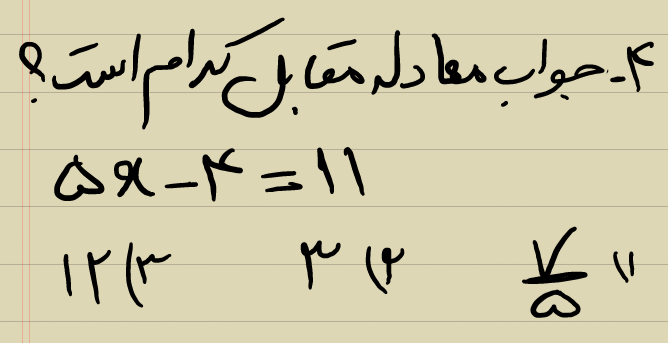 ۴- جواب معادله مقابل کدام است؟
۵x-۴=۱۱
۱) ۷/۵ ۲) ۳ ۳) ۱۲